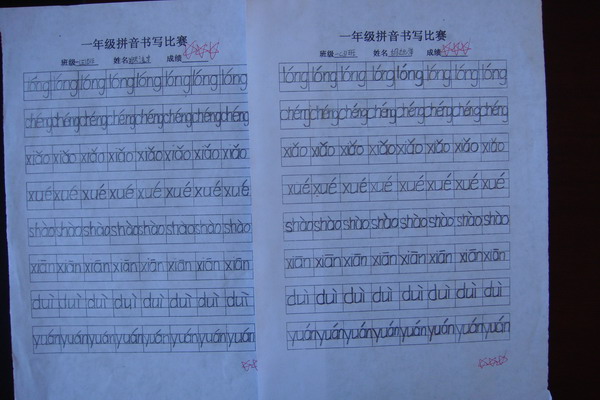 一年级拼音书写比赛
班级 姓名 成绩
lóng lóng lóng lóng lóng lóng lóng lóng
chéng chéng chéng chéng chéng chéng chéng chéng
xiǎo xiǎo xiǎo xiǎo xiǎo xiǎo xiǎo xiǎo
xué xué xué xué xué xué xué xué
shào shào shào shào shào shào shào shào
xiān xiān xiān xiān xiān xiān xiān xiān
duì duì duì duì duì duì duì duì
yuán yuán yuán yuán yuán yuán yuán yuán
一年级拼音书写比赛
班级 姓名 成绩
lóng lóng lóng lóng lóng lóng lóng lóng
chéng chéng chéng chéng chéng chéng chéng chéng
xiǎo xiǎo xiǎo xiǎo xiǎo xiǎo xiǎo xiǎo
xué xué xué xué xué xué xué xué
shào shào shào shào shào shào shào shào
xiān xiān xiān xiān xiān xiān xiān xiān
duì duì duì duì duì duì duì duì
yuán yuán yuán yuán yuán yuán yuán yuán